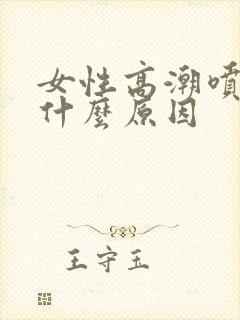 女性高潮噴
什麼原因
王守玉